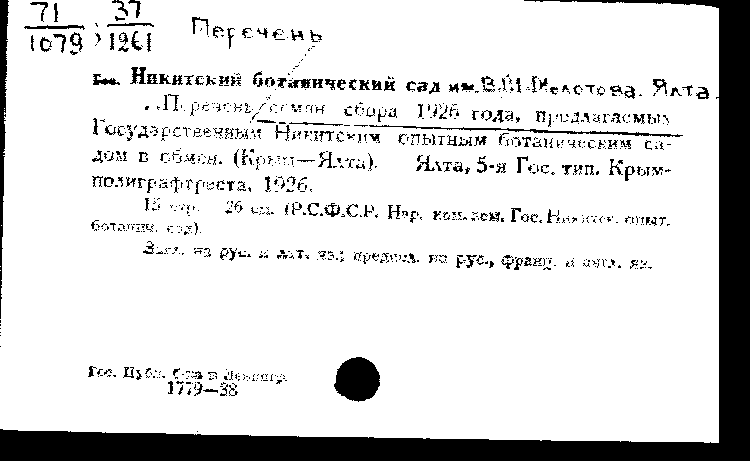 71 37
1079 ; 1261 Перечень
Гос. Никитский ботанический сад им. В.М. Молотова. Ялта.
Перечень семян сбора 1926 года, предлагаемых
Государственным Никитским опытным ботаническим са-
дом в обмен. (Крым—Ялта). Ялта, 5-я Гос. тип. Крым-
полиграфтреста, 1926.
15 стр. 26 см. (Р.С.Ф.С.Р. Нар. ком. зем. Гос. Никитск. опыт.
ботанич. сад).
Загл. на рус. и лат. яз.; предисл. на рус., франц. и англ. яз.
Гос. Публ. б-ка в Ленингр.
1779—38